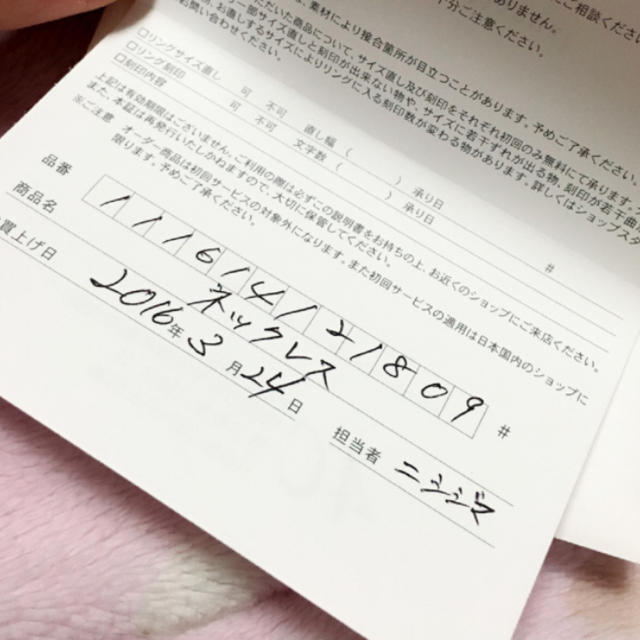 ありません。
にご相談ください。
十分ご注意ください。
素材により接合箇所が目立つことがあります。予めご了承ください。
ただいた商品について、サイズ直し及び刻印をそれぞれ初回のみ無料にて承ります。
お問い合わせください。
□リングサイズ直し 可 不可 直し幅( ) 承り日
□リング刻印 可 不可 文字数( ) 承り日
□刻印内容 #
上記は有効期限はございません。ご利用の際は必ずこの説明書をお持ちの上、お近くのショップにご来店ください。
また、本証は再発行いたしかねますので、大切に保管してください。
※ご注意 オーダー商品は初回サービスの対象外になります。また初回サービスの適用は日本国内のショップに
限ります。予めご了承ください。
品番 111614121809 #
商品名 ネックレス
買上げ日 2016年3月24日
担当者 ニシジマ